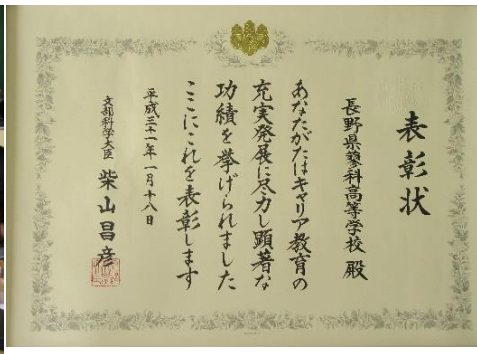 表彰状
長野県蓼科高等学校 殿
あなたがたはキャリア教育の
充実発展に尽力し顕著な
功績を挙げられました
ここにこれを表彰します
平成三十一年一月十八日
文部科学大臣 柴山昌彦